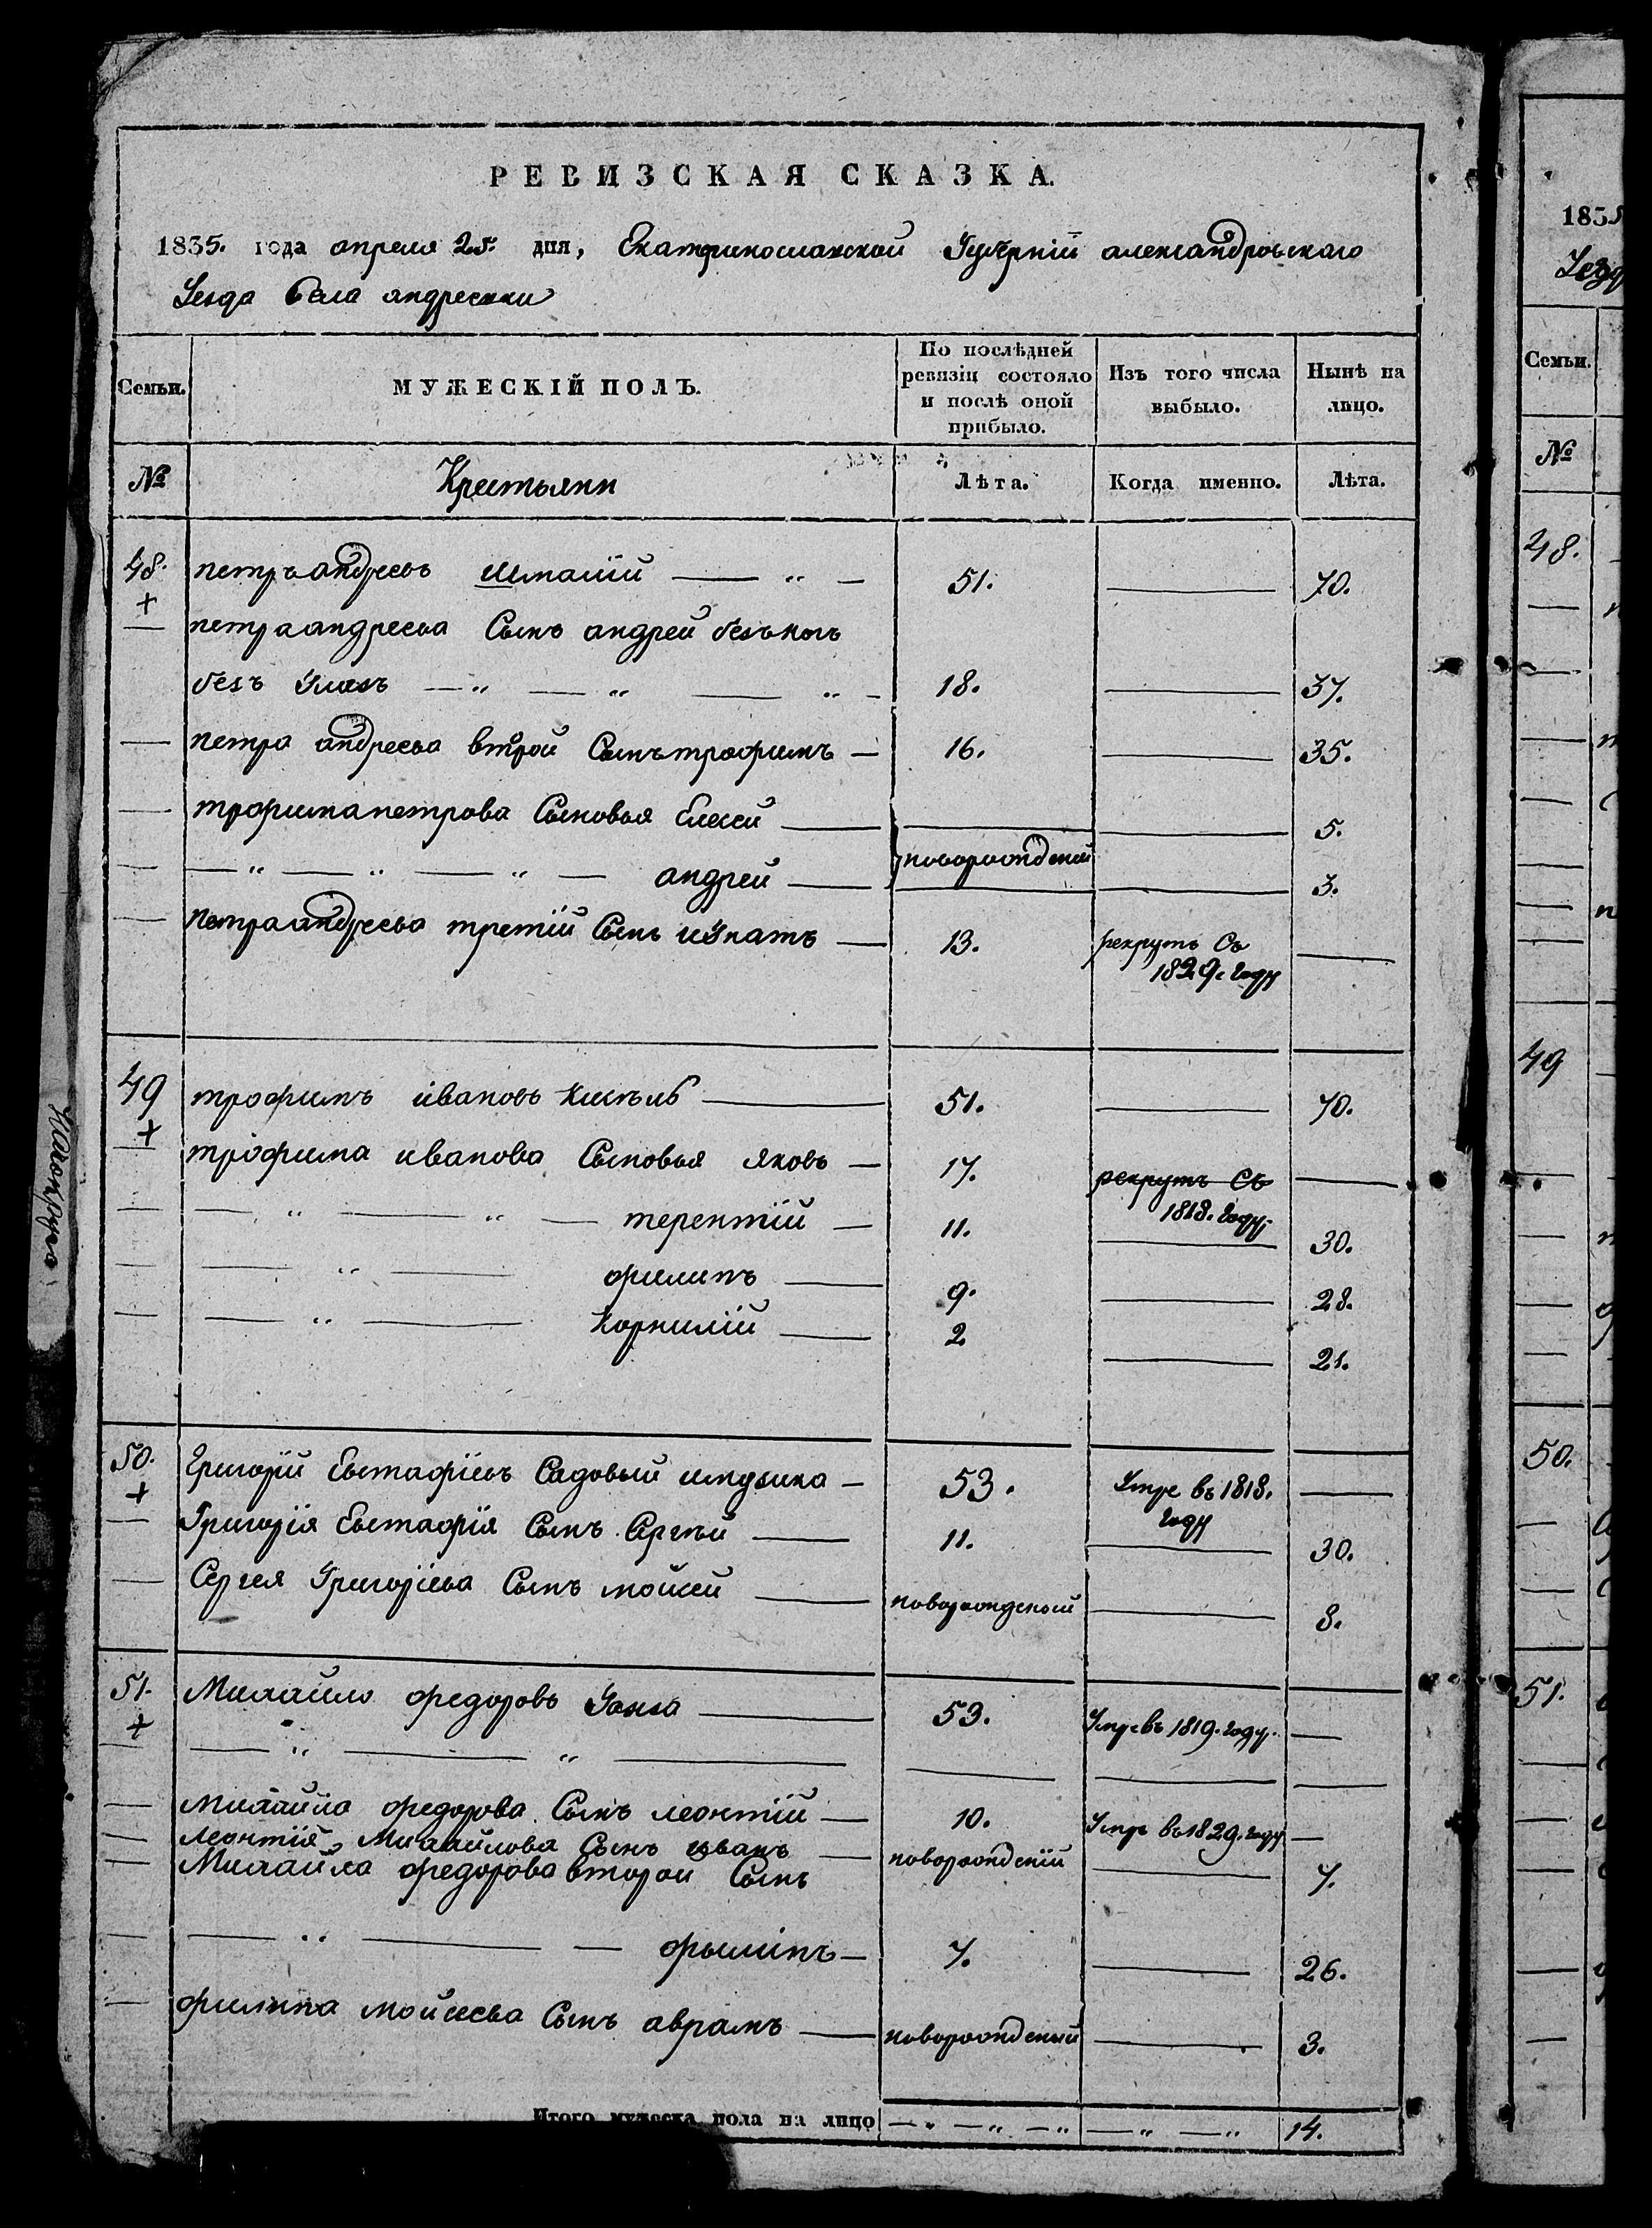 РЕВИЗСКАЯ СКАЗКА.
1835. года апреля 25. дня, Екатеринославской Губернїи александровскаго
Уезда Села андреевки
Семьи.
МУЖЕСКІЙ ПОЛЪ.
По послѣдней ревизіи состояло и послѣ оной прибыло.
Изъ того числа выбыло.
Нынѣ на лицо.
№ Крестьяни Лѣта. Когда именно. Лѣта.
48. петръ андреевъ 51. — 70.
+
— петра андреева Сынъ андрей безъ ногъ
безъ — „ — „ — „ — 18. — 37.
— петра андреева второй Сынъ трофимъ — 16. — 35.
— трофима петрова Сыновья Елесей — — — 5.
— — „ — „ — „ — андрей — новорожденый — 3.
— петра андреева третїй Сынъ игнатъ — 13. рекрутъ Съ —
1829. году
49 трофимъ івановъ — 51. — 70.
+
— трофима иванова Сыновья яковъ — 17. рекрутъ Съ —
1818. году
— — „ — „ — терентїй — 11. — 30.
— — „ — филипъ — 9. — 28.
— — „ — Корнилїй — 2 — 21.
50. Григорїй Евстафїевъ Садовый — 53. Умре въ 1818. —
+ году
— Григорїя Евстафїя Сынъ Сергѣй — 11. — 30.
— Сергея Григорїева Сынъ мойсей — новорожденый — 8.
51. Михайло федоровъ — 53. Умре въ 1819. году. —
+
— — „ — „ — — — —
— михайла федорова Сынъ леонтїй — 10. Умре въ 1829. году —
— леонтїя Михайлова Сынъ иванъ — новорожденїй — 7.
— Михайла федорова второй Сынъ
— — „ — — фылипъ — 7. — 26.
— филипа мойсеева Сынъ аврамъ — новорожденый — 3.
Итого мужеска пола на лицо — „ — „ — „ — „ — „ 14.
1835
Уезд
Семьи.
№
48.
49
50.
51.